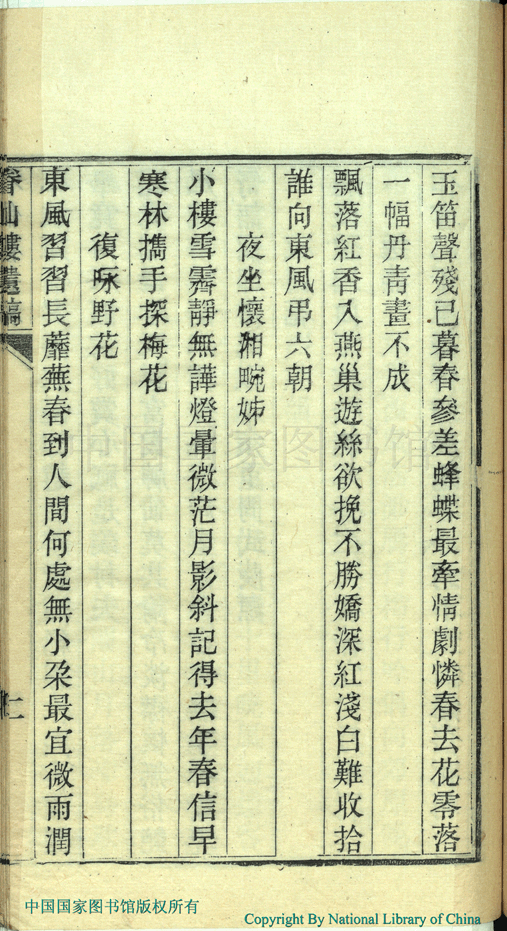 玉笛聲殘已暮春參差蜂蝶最牽情劇憐春去花零落
一幅丹青畫不成
飄落紅香入燕巢遊絲欲挽不勝嬌深紅淺白難收拾
誰向東風弔六朝
夜坐懷湘畹姊
小樓雪霽靜無譁燈暈微茫月影斜記得去年春信早
寒林攜手探梅花
復詠野花
東風習習長蘼蕪春到人間何處無小朶最宜微雨潤
仙樓遺稿
二
中国国家图书馆版权所有
Copyright By National Library of China